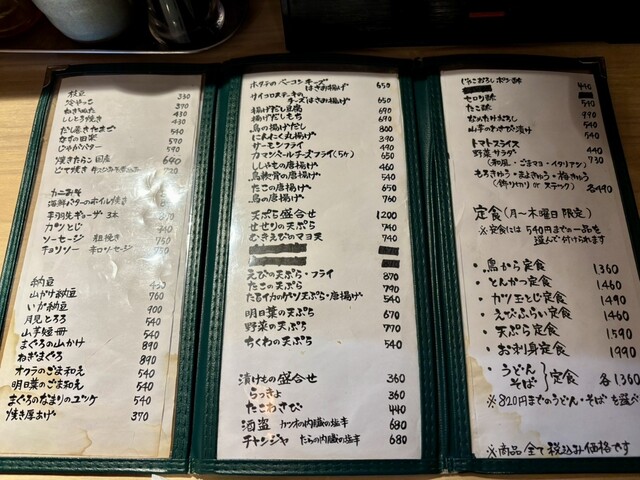 枝豆 330
冷やっこ 370
ねぎぬた 430
ししとう焼き 430
だし巻きたまご 540
なすの田楽 540
じゃがバター 490
焼きたらこ 国産 690
どて焼き 720
カニみそ
海鮮バターのホイル焼き
手羽先ギョーザ 3本 690
カツとじ 740
ソーセージ 粗挽き 750
チョリソー 辛口ソーセージ 750
納豆 430
山かけ納豆 760
いか納豆 900
月見とろろ 540
山芋短冊 540
まぐろの山かけ 890
ねぎまぐろ 890
オクラのごま和え 540
明日葉のごま和え 540
まぐろのなまりのユッケ 540
焼き厚あげ 370
ホタテのベーコンチーズはさみ揚げ 650
サイコロステーキのチーズはさみ揚げ 650
揚げだし豆腐 690
揚げだしもち 690
鳥の揚げだし 800
にんにく丸揚げ 390
サーモンフライ 490
カマンベールチーズフライ(5ヶ) 650
ししゃもの唐揚げ 460
鳥軟骨の唐揚げ 460
たこの唐揚げ 650
鳥の唐揚げ 760
天ぷら盛合せ 1200
せせりの天ぷら 740
むきえびのマヨ天 740
えびの天ぷら・フライ 870
たこの天ぷら 790
たるイカのゲソ天ぷら・唐揚げ 540
明日葉の天ぷら 670
野菜の天ぷら 770
ちくわの天ぷら 540
漬けもの盛合せ 360
らっきょ 360
たこわさび 440
酒盗 カツオの内臓の塩辛 680
チャンジャ たらの内臓の塩辛 680
じゃこおろしポン酢 440
セロリ酢
たこ酢 540
なめたけおろし 540
山芋のわさび漬け 540
トマトスライス 440
野菜サラダ 730
(和風・ごまマヨ・イタリアン)
もろきゅう・まよきゅう・梅きゅう
(飾り切り or スティック) 各490
定食(月〜木曜日限定)
※定食には540円までの一品を
選んで付けられます
・鳥から定食 1360
・とんかつ定食 1460
・カツ玉とじ定食 1490
・えびふらい定食 1460
・天ぷら定食 1590
・お刺身定食 1990
・うどん
そば}定食 各1360
※820円までのうどん・そばを選べ
※商品全て税込み価格です